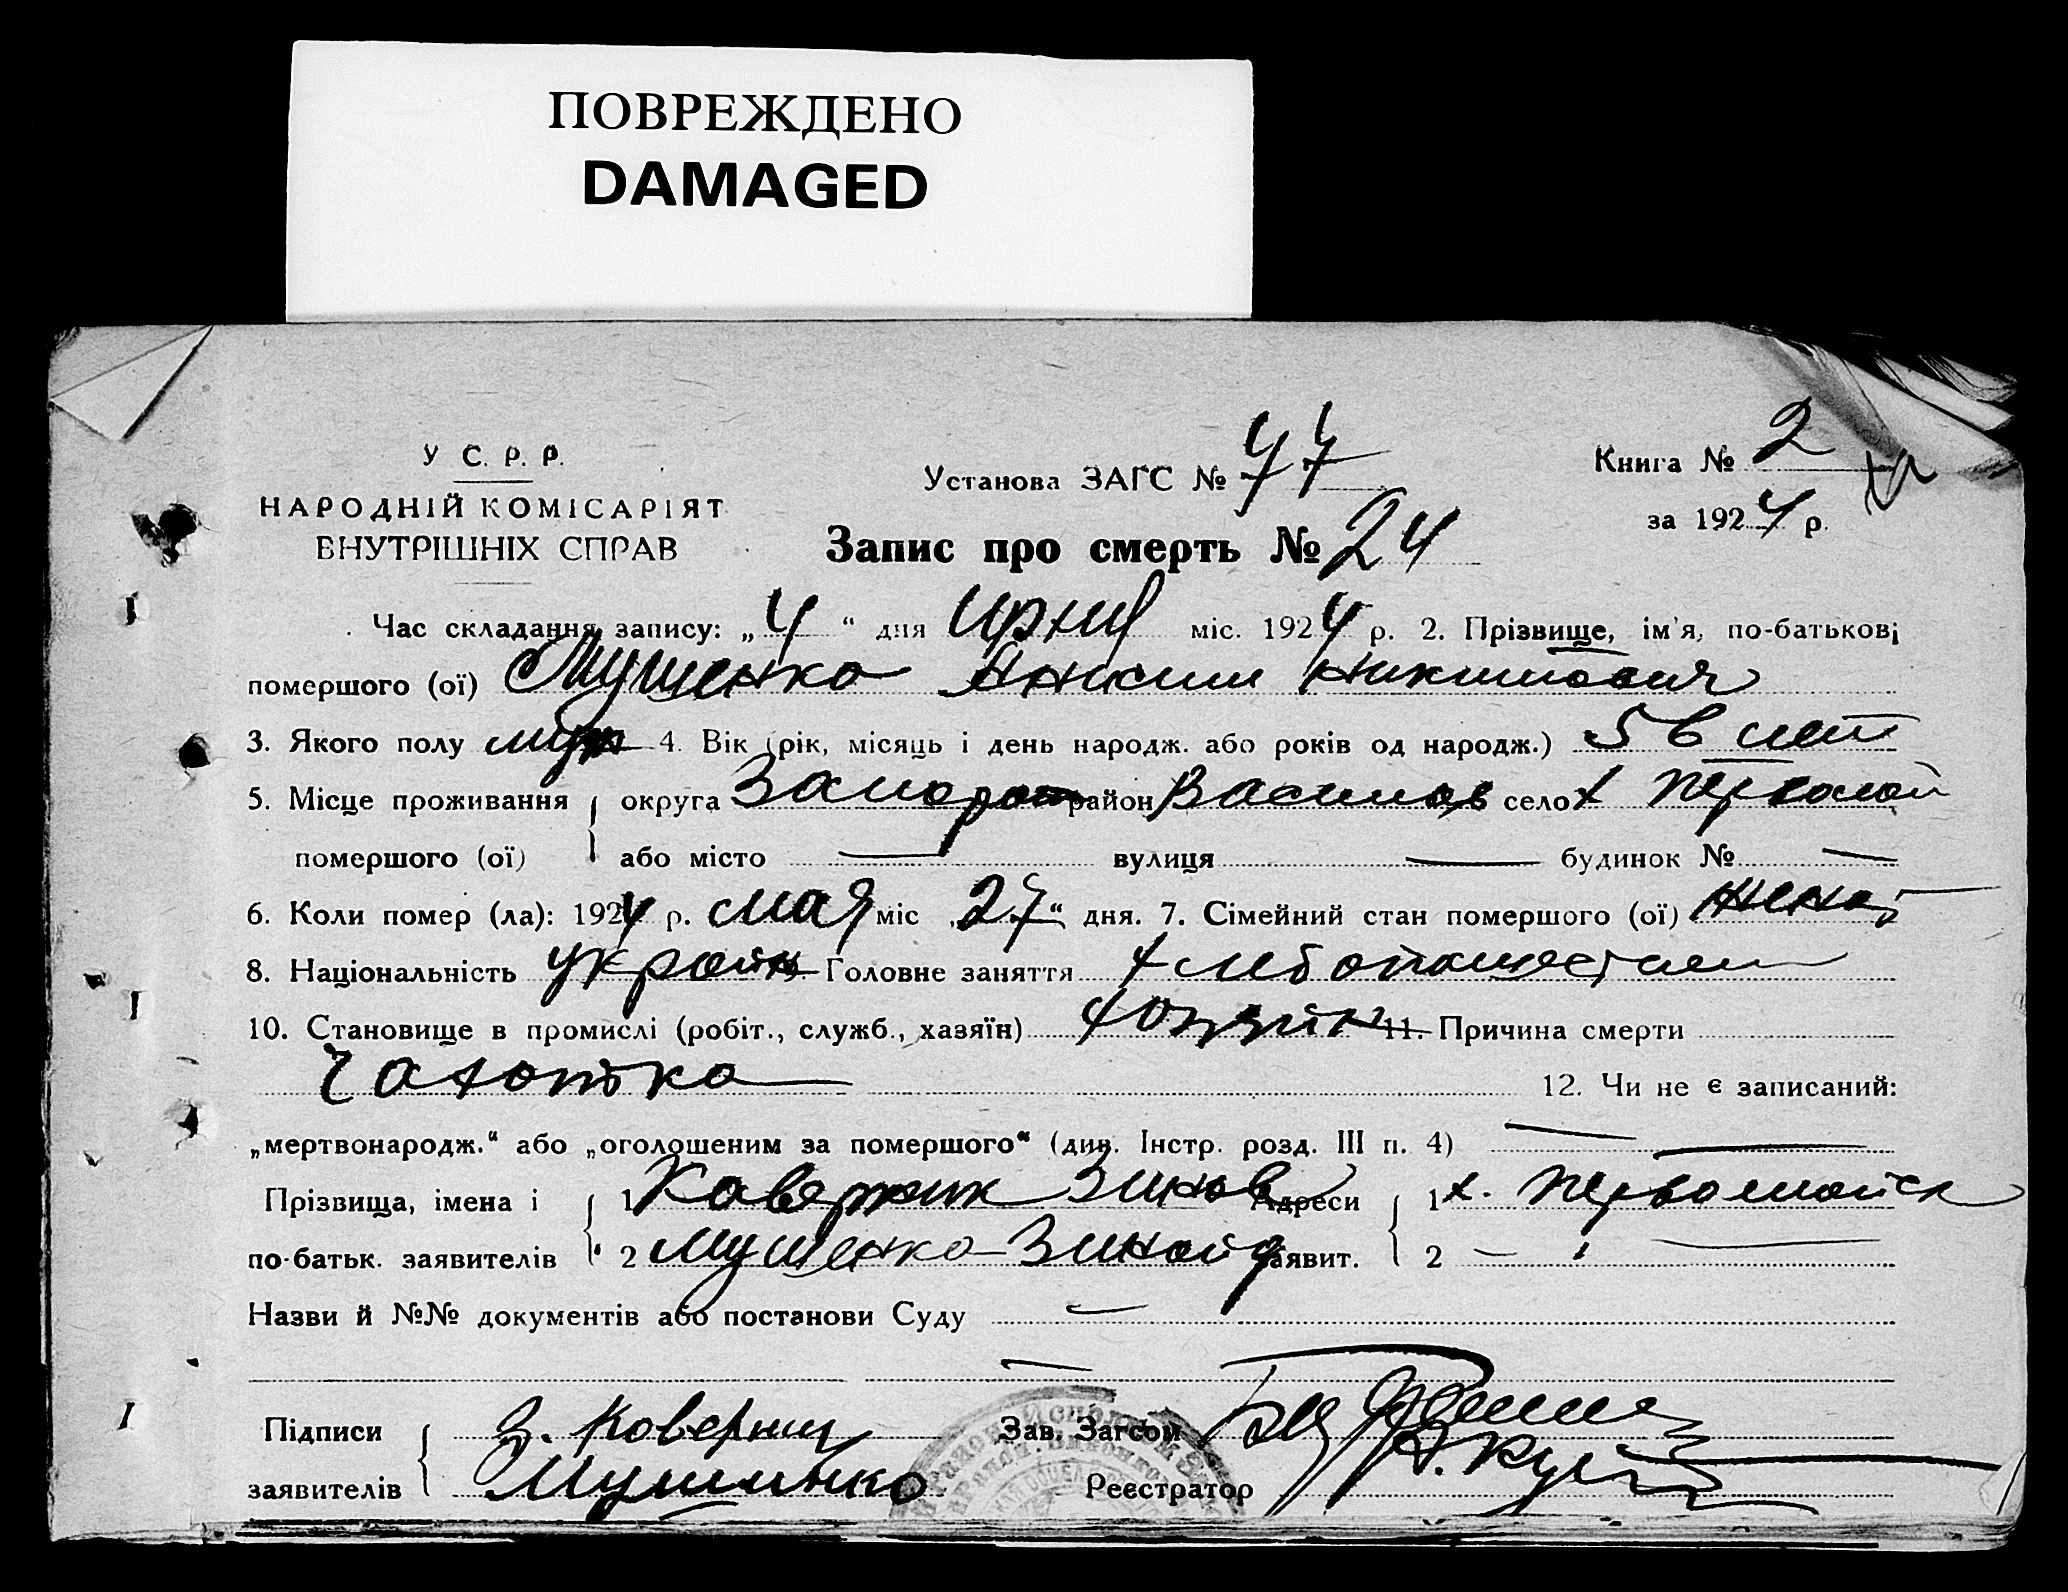 ПОВРЕЖДЕНО
DAMAGED
У С. Р. Р.
НАРОДНІЙ КОМІСАРІЯТ
ВНУТРІШНІХ СПРАВ
Установа ЗАГС № 77
Книга № 2
за 1924 р.
Запис про смерть № 24
Час складання запису: „4“ дня Июня міс. 1924 р. 2. Прізвище, ім'я, по-батькові
помершого (ої) Мушенко Анисим Никитович
3. Якого полу муж 4. Вік (рік, місяць і день народж. або років од народж.) 56 лет
5. Місце проживання округа Запорож район Василев село х Первомай
помершого (ої) або місто — вулиця — будинок № —
6. Коли помер (ла): 1924 р. мая міс. „27“ дня. 7. Сімейний стан помершого (ої) женат
8. Національність україн Головне заняття хлебопашеством
10. Становище в промислі (робіт., служб., хазяїн) хозяин 11. Причина смерти
Чахотка 12. Чи не є записаний:
„мертвонародж.“ або „оголошеним за помершого“ (див. Інстр. розд. III п. 4) —
Прізвища, імена і 1 Коверник Зинов Адреси 1 х. Первомайск
по-батьк. заявителів 2 Мушенко Зинаид заявит. 2 — „ —
Назви й №№ документів або постанови Суду —
Підписи З. Коверник Зав. Загсом
заявителів Мушинко Реєстратор